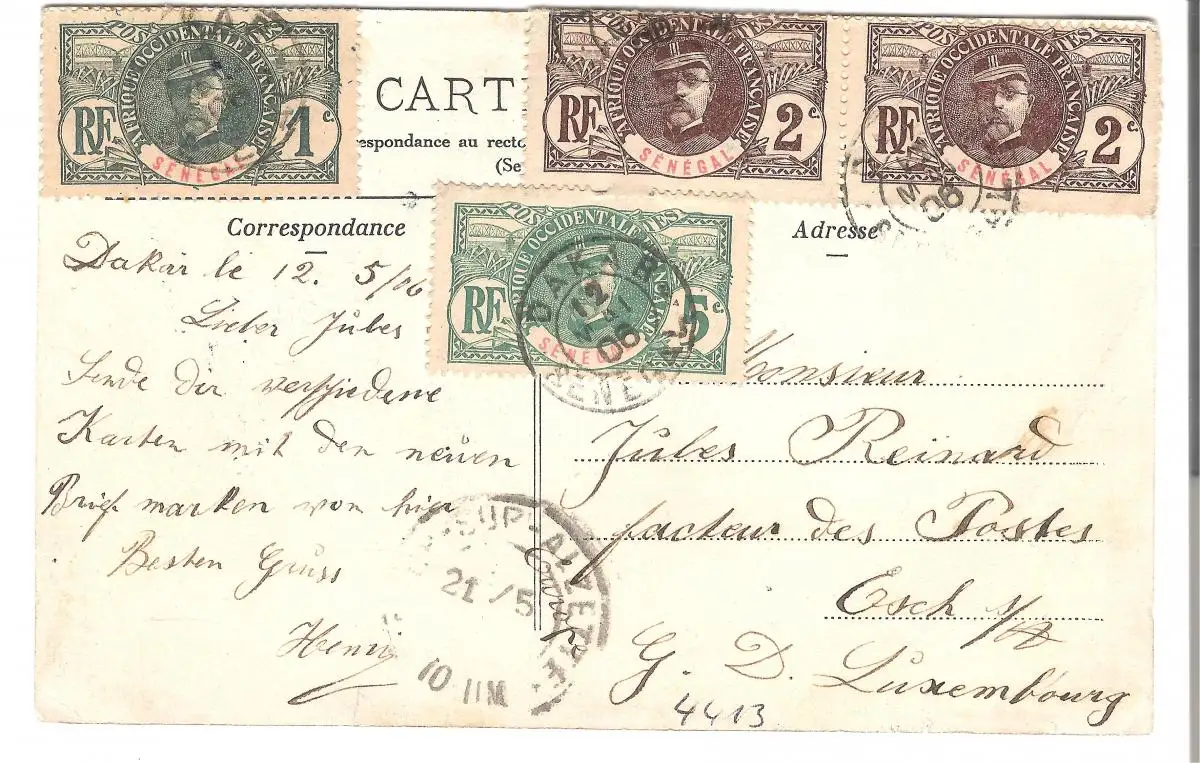 POSTES
AFRIQUE OCCIDENTALE FRANÇAISE
RF 1 c.
SÉNÉGAL
POSTES
AFRIQUE OCCIDENTALE FRANÇAISE
RF 2 c.
SÉNÉGAL
POSTES
AFRIQUE OCCIDENTALE FRANÇAISE
RF 2 c.
SÉNÉGAL
CART
espondance au recto
(Se
06
Correspondance
Adresse
POSTES
AFRIQUE OCCIDENTALE FRANÇAISE
RF 5 c.
SÉNÉGAL
DAKAR
12
MAI
06
SENEGAL
Dakar le 12. 5/06
Lieber Jules
Sende dir verschiedene
Karten mit den neuen
Brief marken von hier
Besten Gruss
Henri
Monsieur
Jules Reinard
facteur des Postes
Esch s/A
G. D. Luxembourg
SUR-ALZETTE
21/5
10 11M
4413